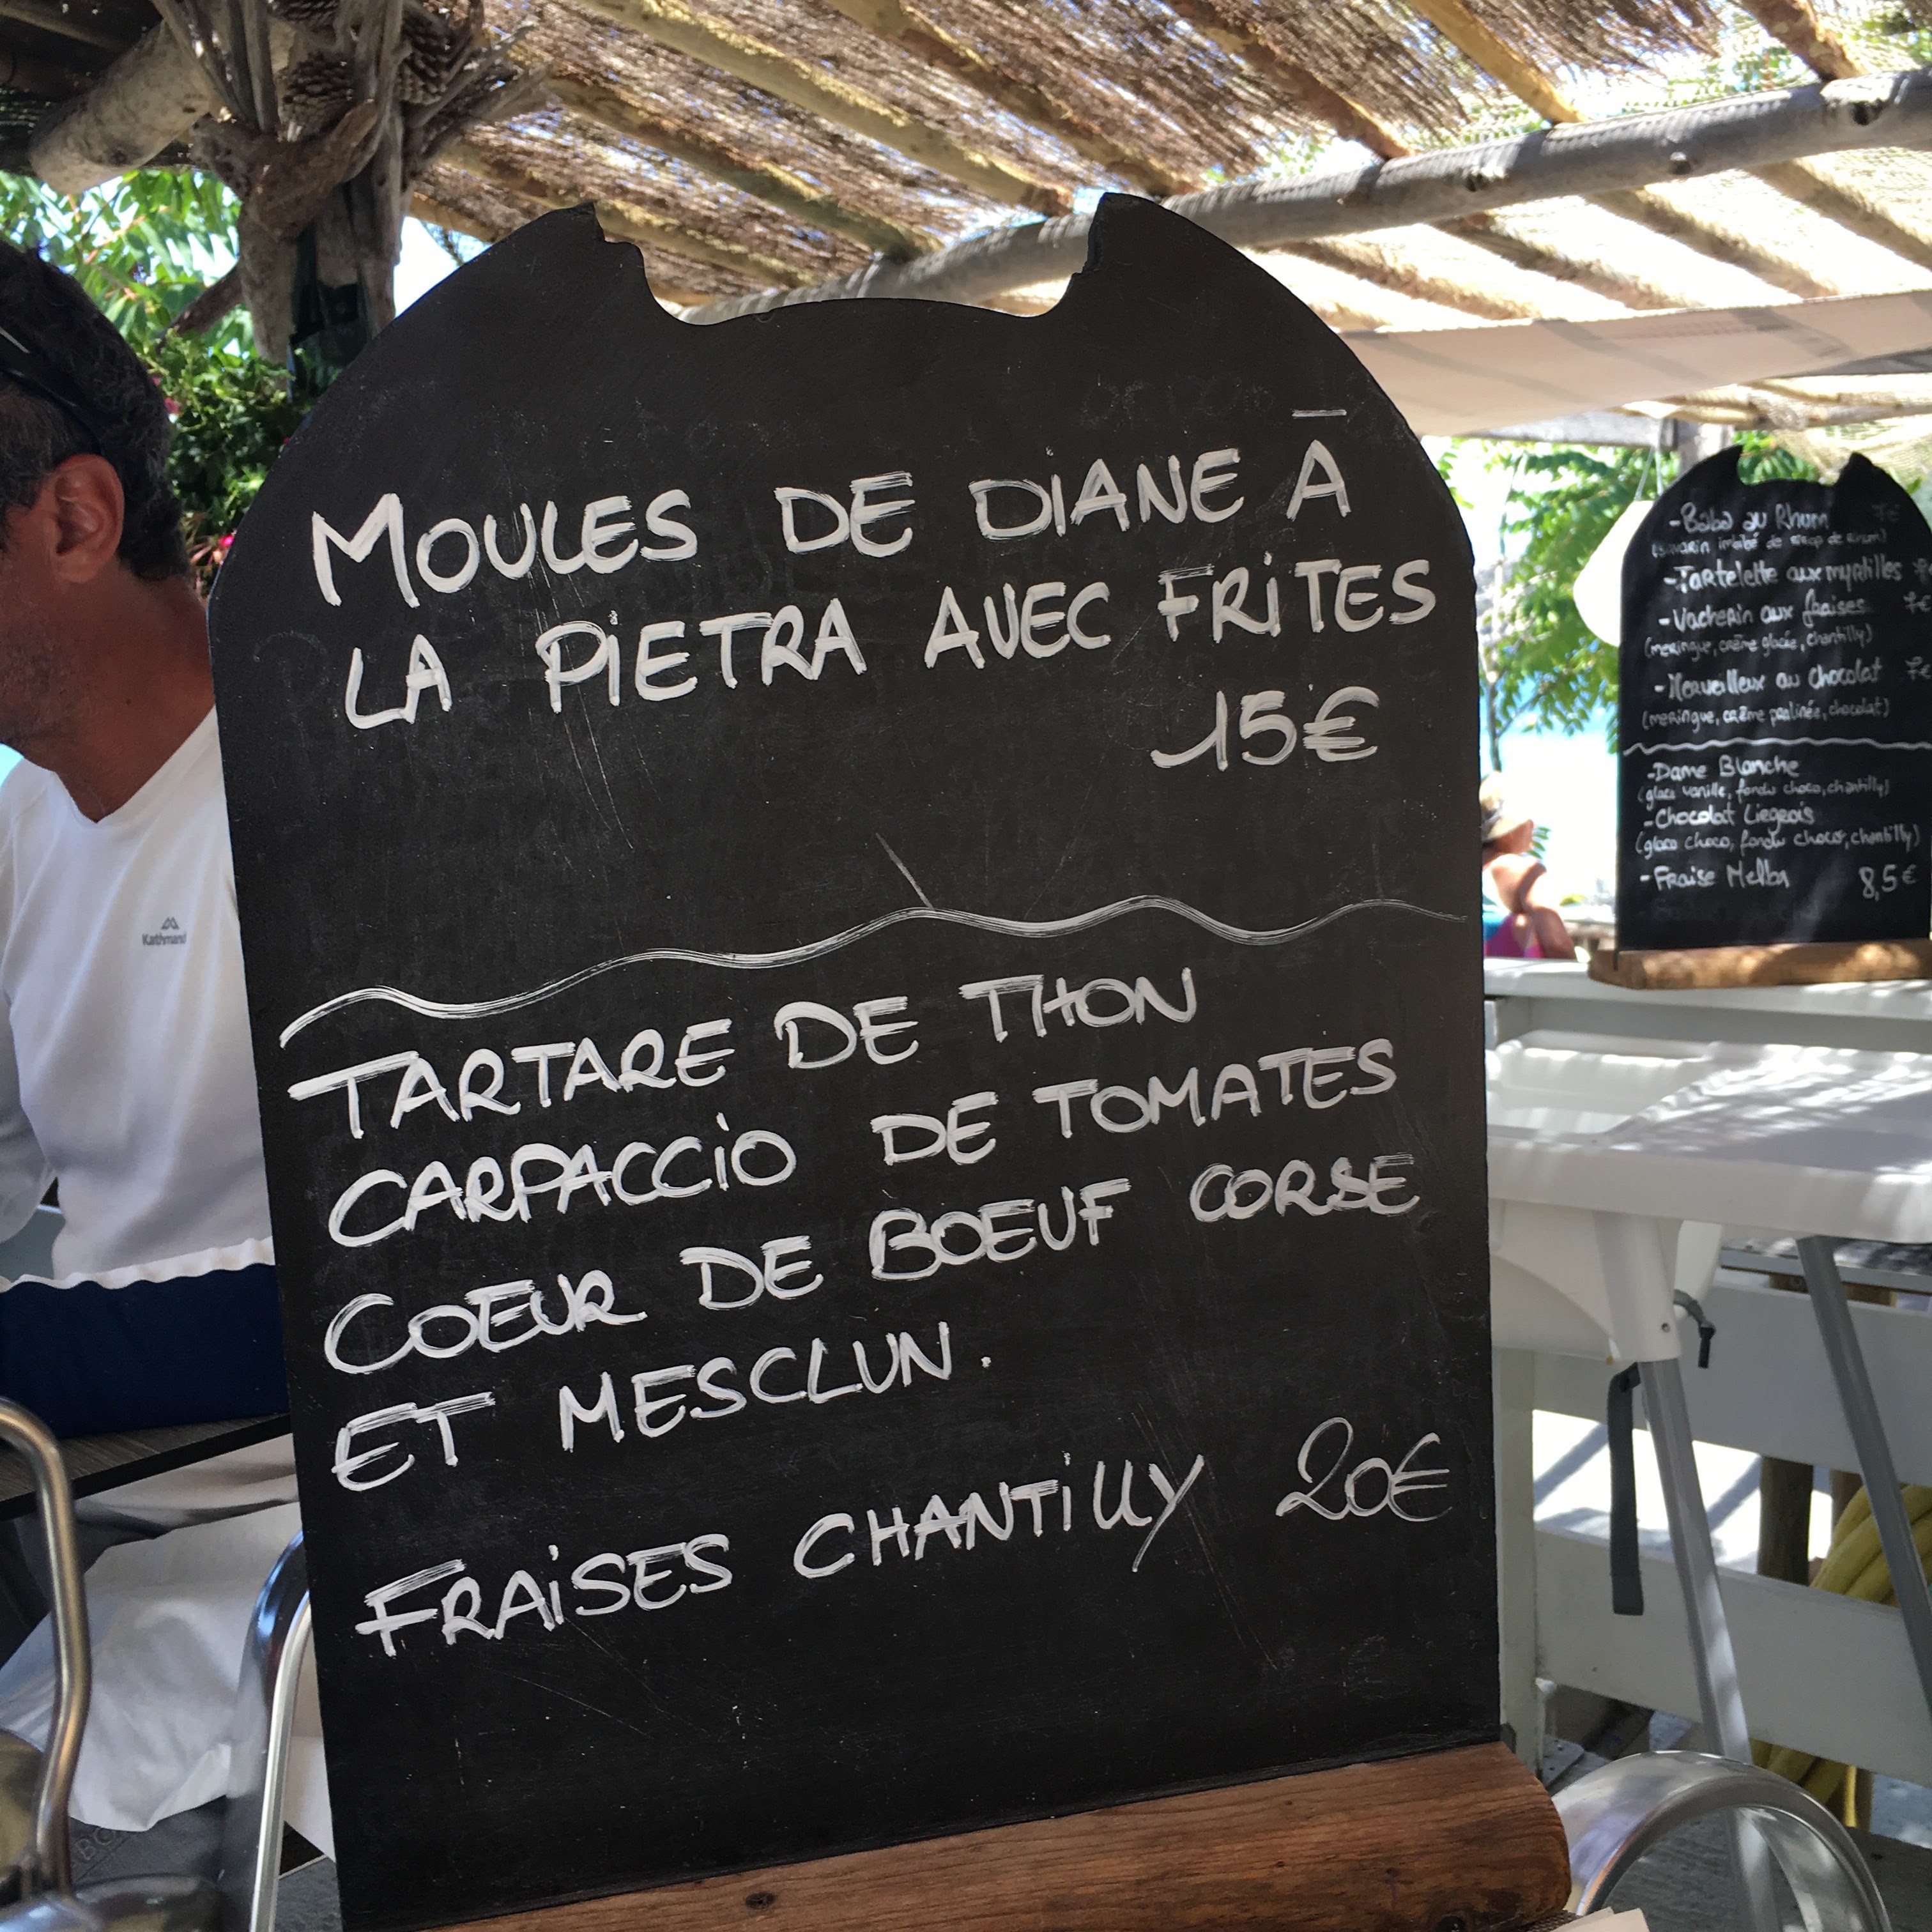 MOULES DE DIANE À
LA PIETRA AVEC FRITES
15€
TARTARE DE THON
CARPACCIO DE TOMATES
COEUR DE BOEUF CORSE
ET MESCLUN.
FRAISES CHANTILLY 20€
- Baba au Rhum 7€
(savarin imbibé de sirop de rhum)
- Tartelette aux myrtilles 7€
- Vacherin aux fraises 7€
(meringue, crème glacée, chantilly)
- Merveilleux au chocolat 7€
(meringue, crème pralinée, chocolat)
- Dame Blanche
(glace vanille, fondu choco, chantilly)
- Chocolat Liegeois
(glace choco, fondu choco, chantilly)
- Fraise Melba 8,5€
Kathmand